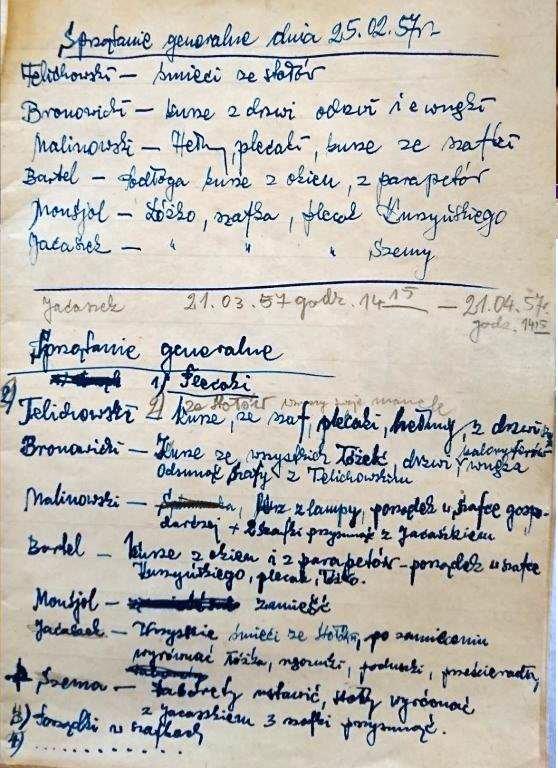 Sprzątanie generalne dnia 25.02.57r
Felichowski — śmieci ze stołów
Bronowicki — kurze z drzwi odrzwi i ewnęki
Malinowski — Hełmy, plecaki, kurze ze szafki
Bartel — Podłoga kurze z okien, z parapetów
Monsjol — Łóżko, szafka, plecak Kuszyńskiego
Jacaszek — " " " Szemy
Jacaszek 21.03.57 godz. 14 15 — 21.04.57r
godz. 14 15
Sprzątanie generalne
1) Plecaki
2) ze stołów
Felichowski — kurze, ze szaf, plecaki, hełmy, z drzwi
Bronowicki — Kurze ze wszystkich łóżek drzwi, wnęka
Odsunąć szafy z Felichowskim
Malinowski — kurz z lampy, porządek w szafce gospo-
darczej + 2 szafki przysunąć z Jacaszkiem
Bartel — kurze z okien i z parapetów - porządek w szafce
Kuszyńskiego, plecak, łóżko.
Monsjol — zamieść
Jacaszek — Wszystkie śmieci ze stołów, po zamieceniu
wyrównać łóżka, poduszki, prześcieradła,
Szema — taborety ustawić, stoły wyrównać
z Jacaszkiem 3 szafki przysunąć.
3) Porządki w szafkach
4) . . . . . . . . .